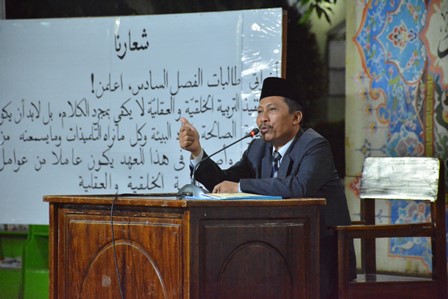 شعارنا
طالبات الفصل السادس، اعلمن!
التربية الخلقية و العقلية لا يكفي بمجرد الكلام، بل لابد أن يكون
الصالحة البيئة وكل مارآه التلميذات ومايسمعنه من
فى هذا المعهد يكون عاملا من عوامل
الخلقية و العقلية